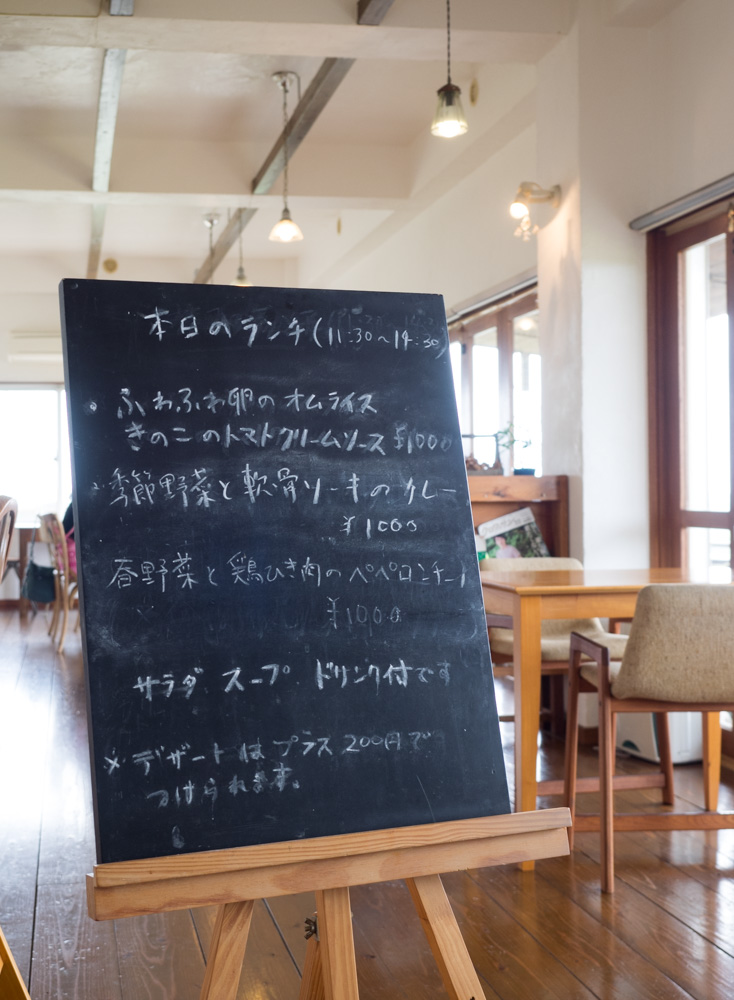 本日のランチ(11:30～14:30)
・ふわふわ卵のオムライス
きのこのトマトクリームソース ¥1000
・季節野菜と軟骨ソーキのカレー
¥1000
春野菜と鶏ひき肉のペペロンチーノ
¥1000
サラダ スープ ドリンク付です
※デザートはプラス200円で
つけられます。